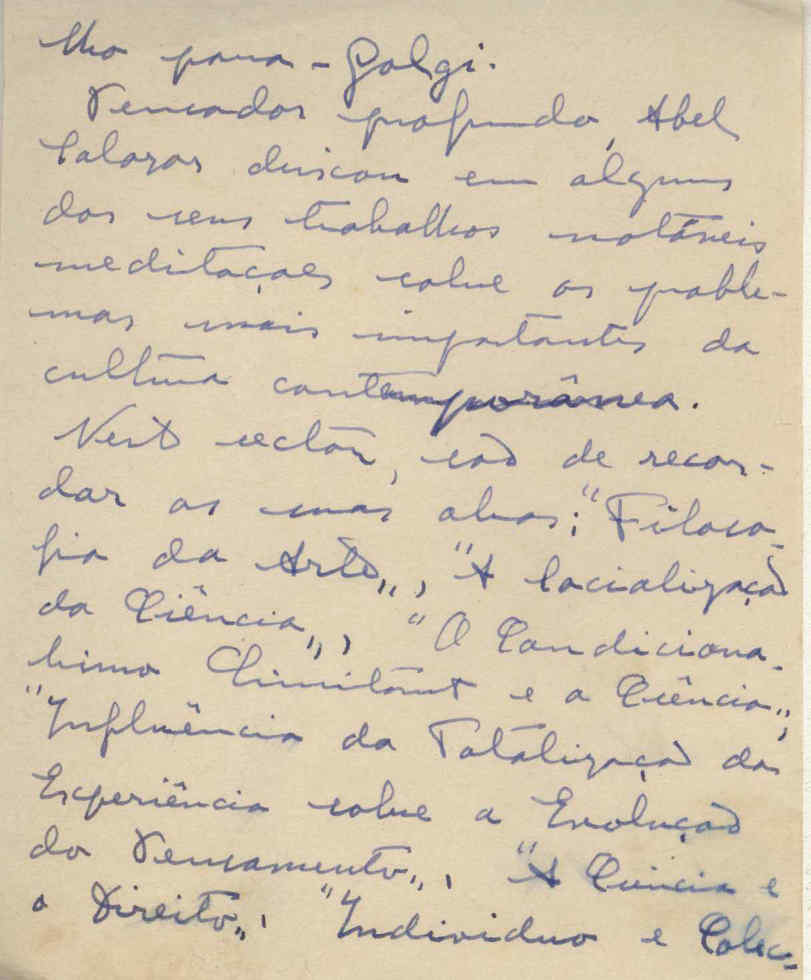 lho para - Golgi.
Pensador profundo, Abel
Salazar deixou em alguns
dos seus trabalhos notáveis
meditações sobre os proble-
mas mais importantes da
cultura contemporânea.
Neste sector, são de recor-
dar as suas obras: "Filoso-
fia da Arte„, "A Socialização
da Ciência„, "O Condiciona-
lismo e a Ciência„,
"Influência da Totalização da
Experiência sobre a Evolução
do Pensamento„, "A Ciência e
o Direito„, "Individuo e Colec-